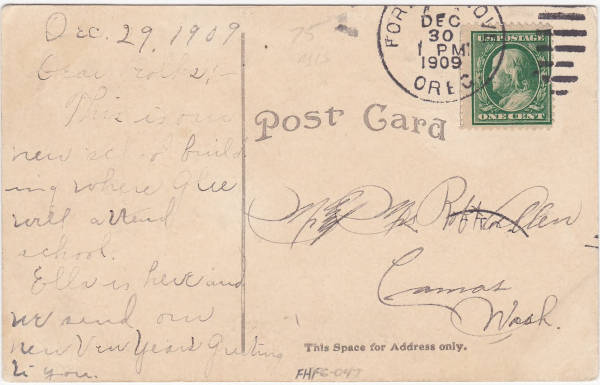 Dec. 29, 1909
Dear folks:-
This is our
new school build
ing where Glee
will attend
school.
Ella is here and
we send our
new Years Greeting
to you.
75
Post Card
DEC
30
1 PM
1909
OREG.
U.S. POSTAGE
ONE CENT
Mr & Mrs Robt
Camas
Wash.
This Space for Address only.
FHFG-047